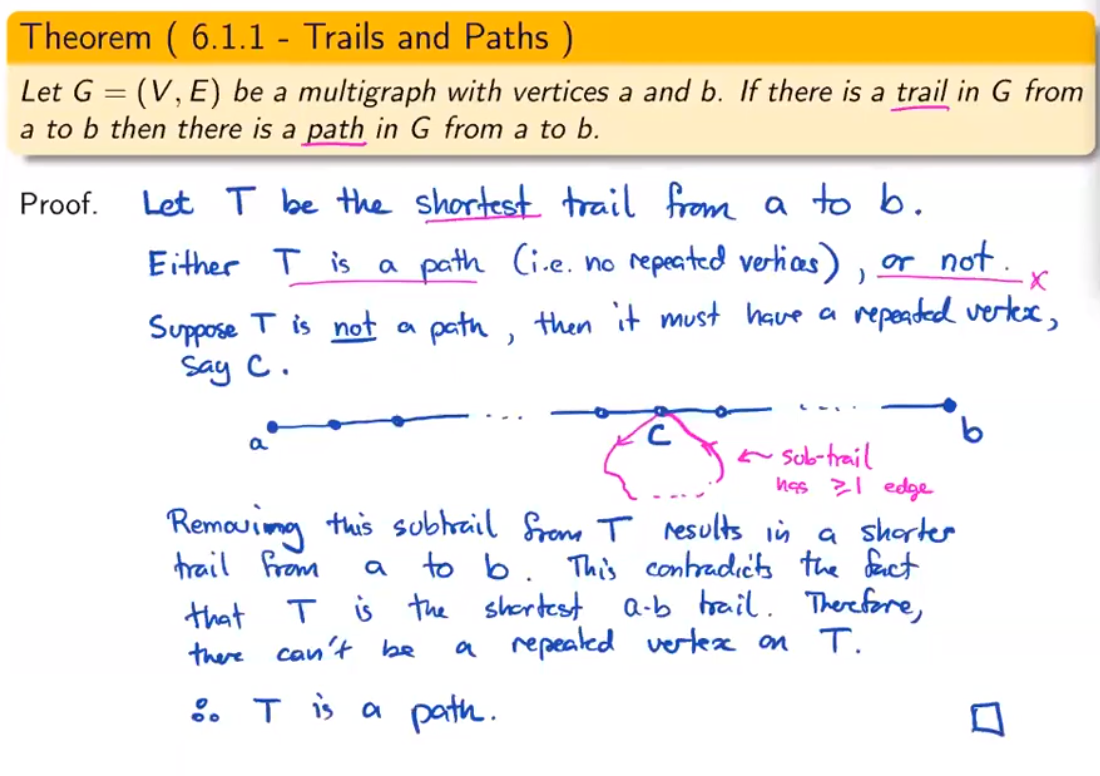 Theorem ( 6.1.1 - Trails and Paths )
Let G = (V, E) be a multigraph with vertices a and b. If there is a trail in G from
a to b then there is a path in G from a to b.
Proof. Let T be the shortest trail from a to b.
Either T is a path (i.e. no repeated vertices), or not. x
Suppose T is not a path, then it must have a repeated vertex,
say C.
a ... C .... b
← sub-trail
has ≥1 edge
Removing this subtrail from T results in a shorter
trail from a to b. This contradicts the fact
that T is the shortest a-b trail. Therefore,
there can't be a repeated vertex on T.
∴ T is a path. □